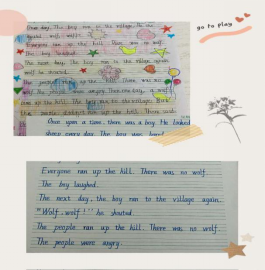 go to play
One day, the boy ran to the village. He
shouted "wolf, wolf!"
Everyone ran up the hill. There was no wolf.
The boy laughed.
The next day, the boy ran to the village again.
wolf he shouted.
The people ran up the hill. There was no
wolf. The people were angry. Then one day, a wolf
The boy ran to the village. But
the people didn't run up the hill. There was
Once upon a time, there was a boy. He looked
sheep every day. The boy was bored
Everyone ran up the hill. There was no wolf.
The boy laughed.
The next day, the boy ran to the village again.
"Wolf, wolf!" he shouted.
The people ran up the hill. There was no wolf.
The people were angry.